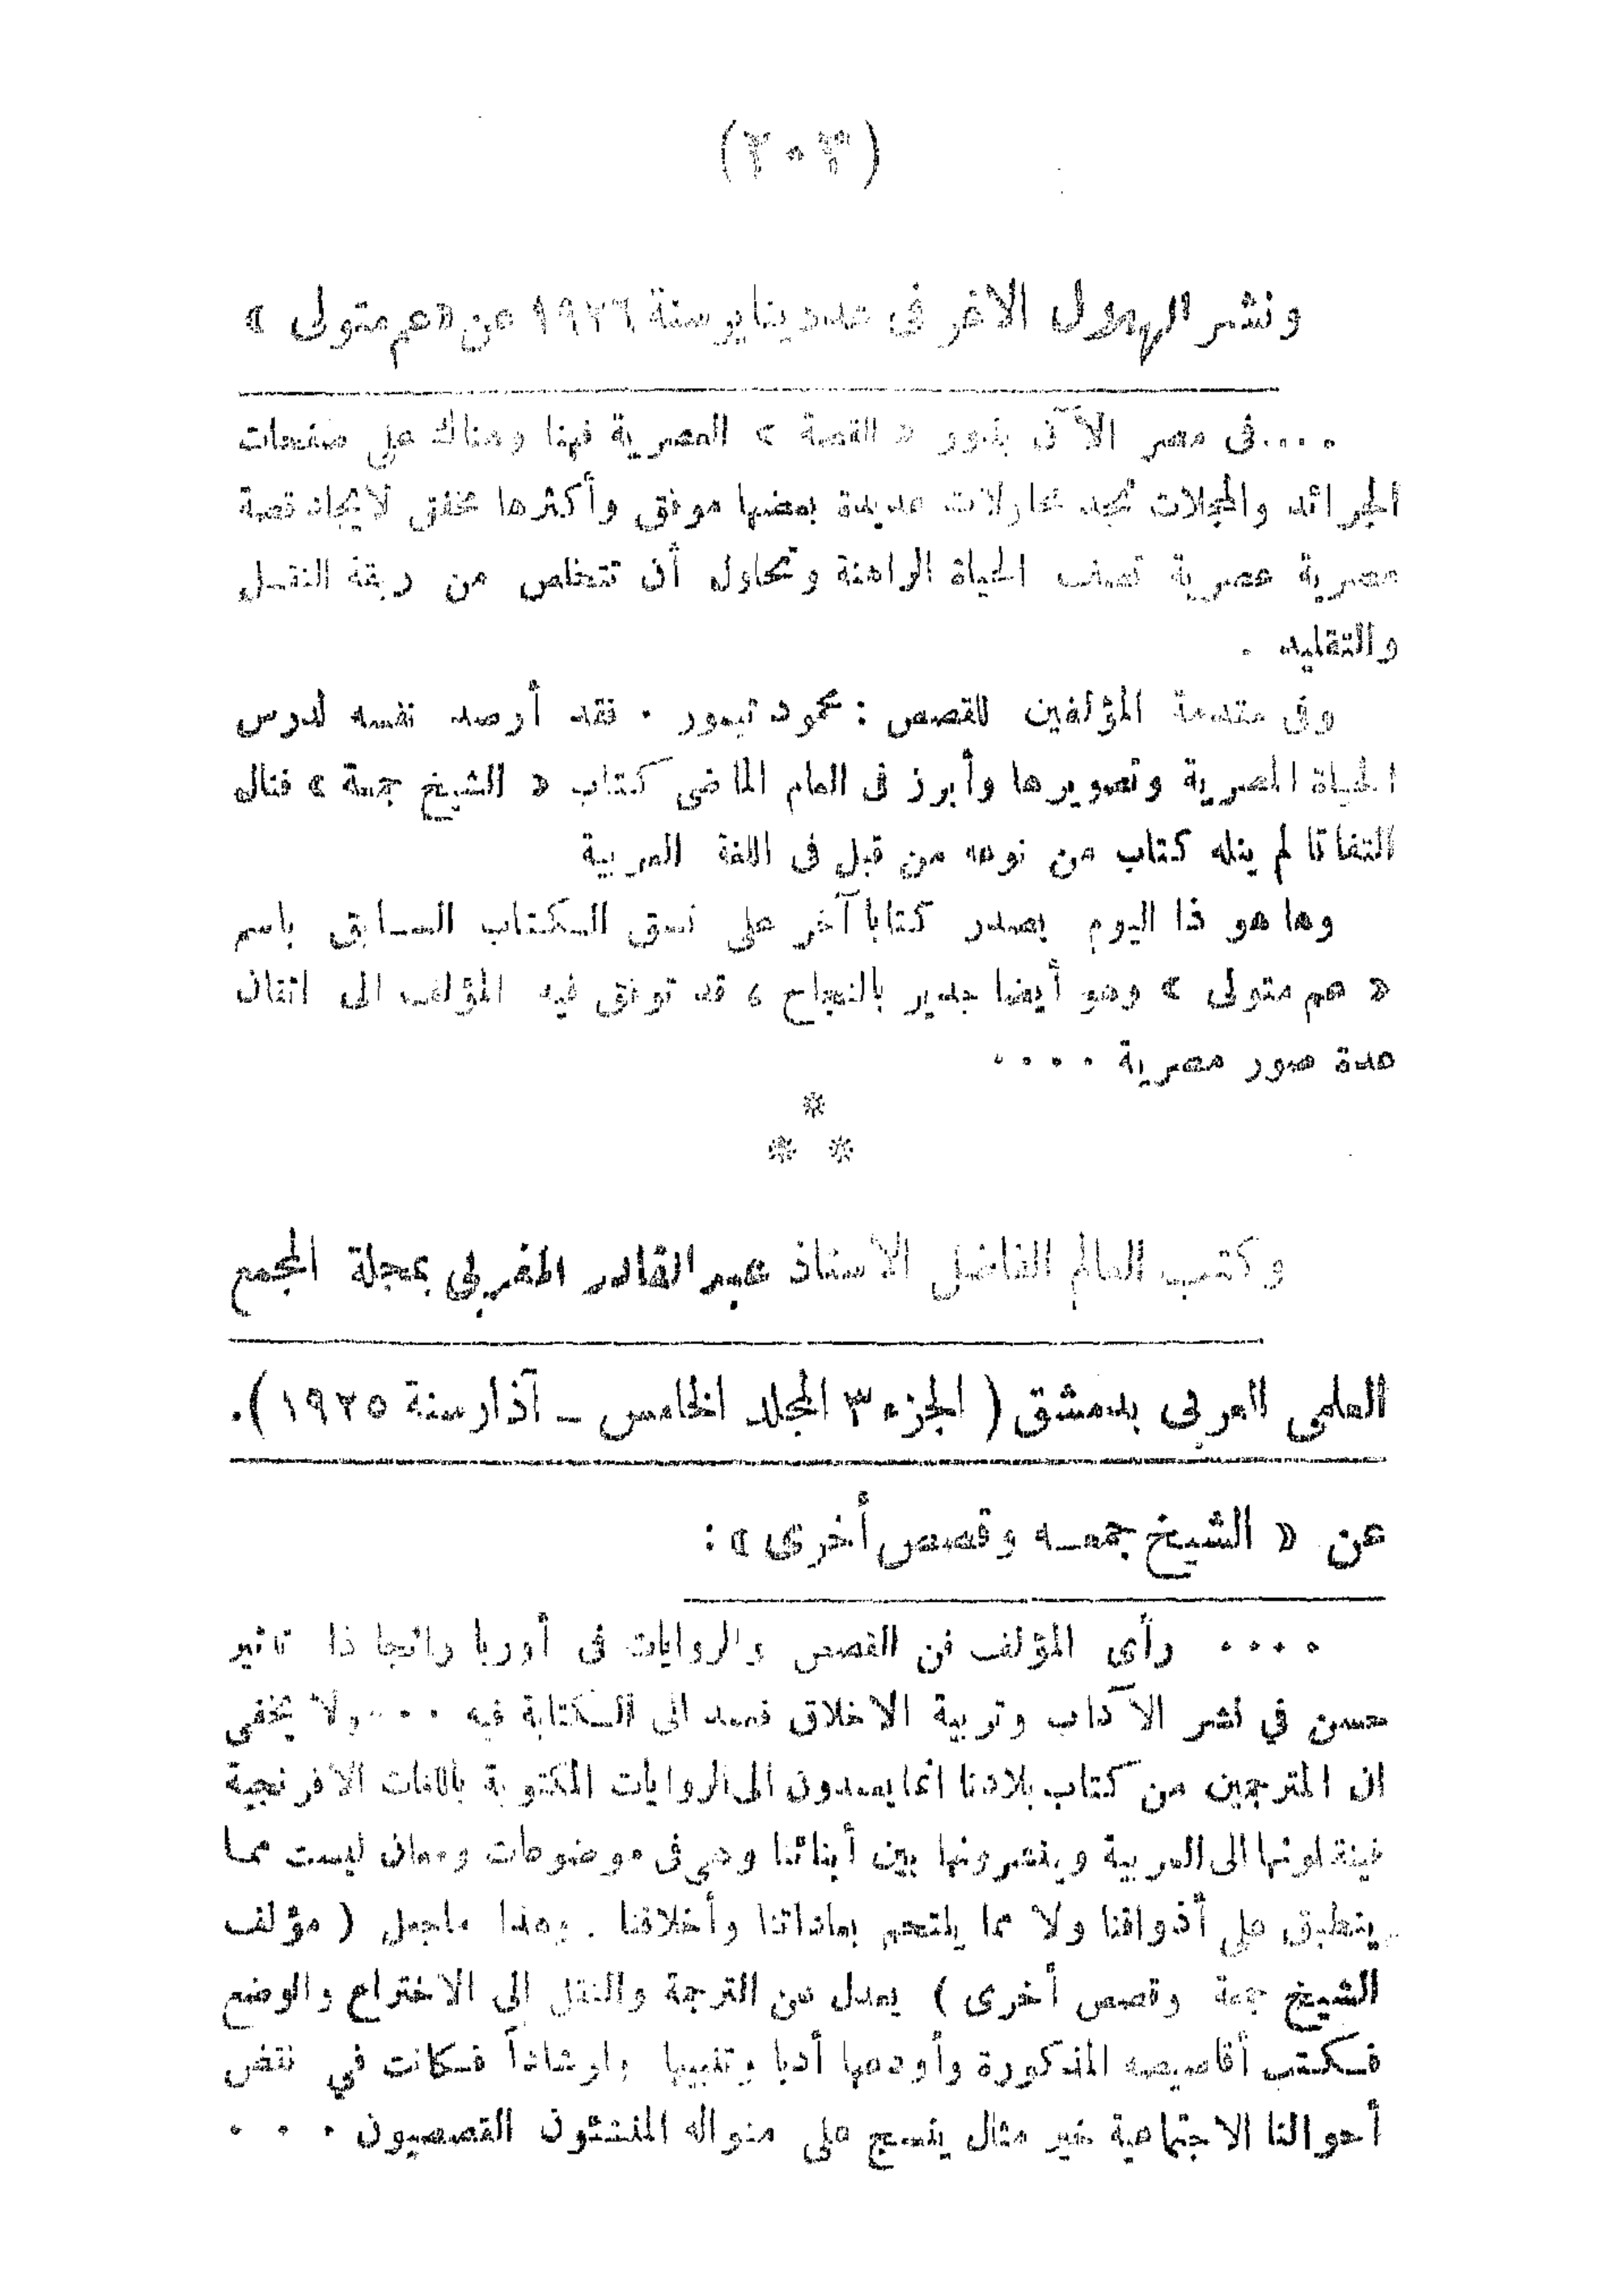 (٢٠٣)
ونشر الهلال الاغر فى عدد يناير سنة ١٩٢٦ عن «عم متولى»
....فى مصر الآن بذور « القصة » المصرية فهنا وهناك على صفحات
الجرائد والمجلات نجد محاولات عديدة بعضها موفق وأكثرها مخفق لايجاد قصة
مصرية عصرية تصف الحياة الراهنة وتحاول أن تتخلص من ربقة النقل
والتقليد .
وفى مقدمة المؤلفين للقصص : محمود تيمور . فقد أرصد نفسه لدرس
الحياة المصرية وتصويرها وأبرز فى العام الماضى كتاب « الشيخ جمعة » فنال
التفاتا لم ينله كتاب من نوعه من قبل فى اللغة العربية
وها هو ذا اليوم يصدر كتابا آخر على نسق الكتاب السابق باسم
« عم متولى » وهو أيضا جدير بالنجاح ، قد توفق فيه المؤلف الى اتقان
عدة صور مصرية ....
*
* *
وكتب العالم الفاضل الاستاذ عبد القادر المغربى بمجلة المجمع
العلمى العربى بدمشق ( الجزء ٣ المجلد الخامس ــ آذار سنة ١٩٢٥ ).
عن « الشيخ جمعه وقصص أخرى » :
.... رأى المؤلف فن القصص والروايات فى أوربا رائجا ذا تاثير
حسن في نشر الآداب وتربية الاخلاق فعمد الى الكتابة فيه ....ولا يخفى
ان المترجمين من كتاب بلادنا انما يعمدون الى الروايات المكتوبة باللغات الافرنجية
فينقلونها الى العربية وينشرونها بين أبنائنا وهى فى موضوعات ومعان ليست مما
ينطبق على أذواقنا ولا مما يلتحم بعاداتنا وأخلاقنا . وهذا ماجعل ( مؤلف
الشيخ جمعة وقصص أخرى ) يعدل عن الترجمة والنقل إلى الاختراع والوضع
فكتب أقاصيصه المذكورة وأودعها أدبا وتنبيها وارشاداً فكانت في نقض
أحوالنا الاجتماعية خير مثال ينسج على منواله المنشئون القصصيون . . .